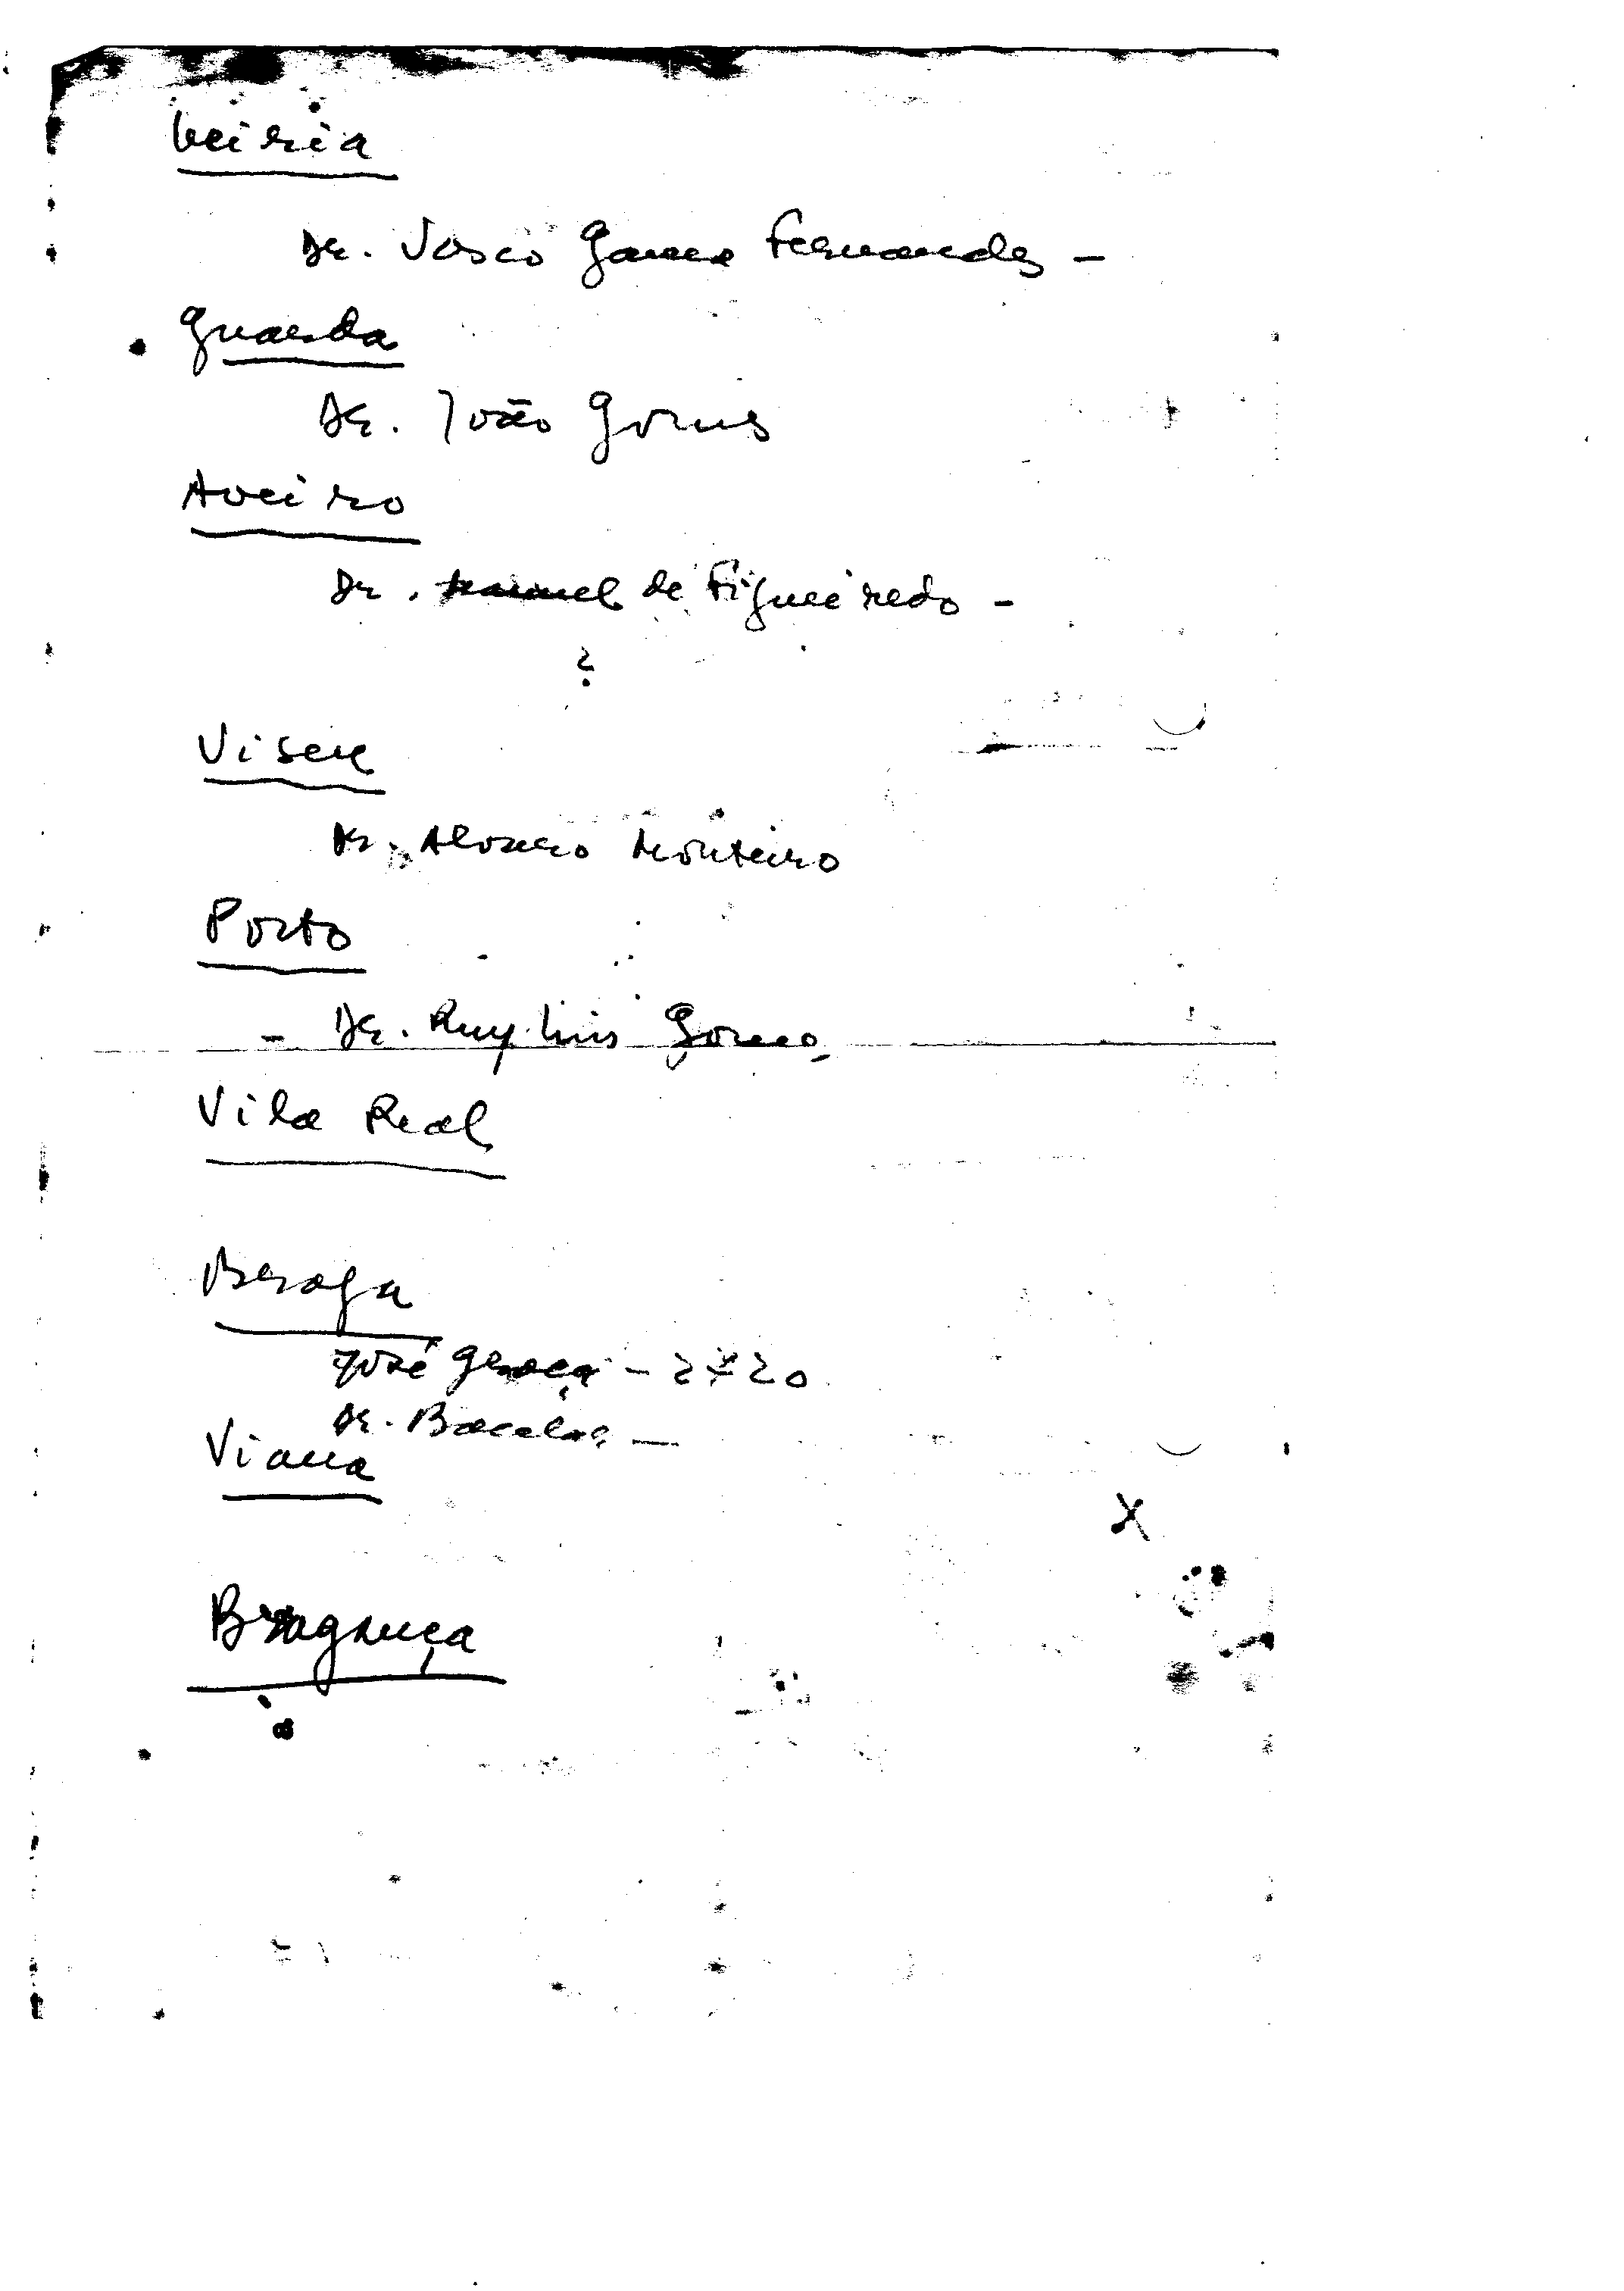 Leiria
Dr. Vasco Gama Fernandes -
Guarda
Dr. João Gomes
Aveiro
Dr. Manuel de Figueiredo -
?
Viseu
Dr. Álvaro Monteiro
Porto
- Dr. Ruy Luis Gomes
Vila Real
Braga
José Graça - 2720
Dr. Bacelar -
Viana
X
Bragança